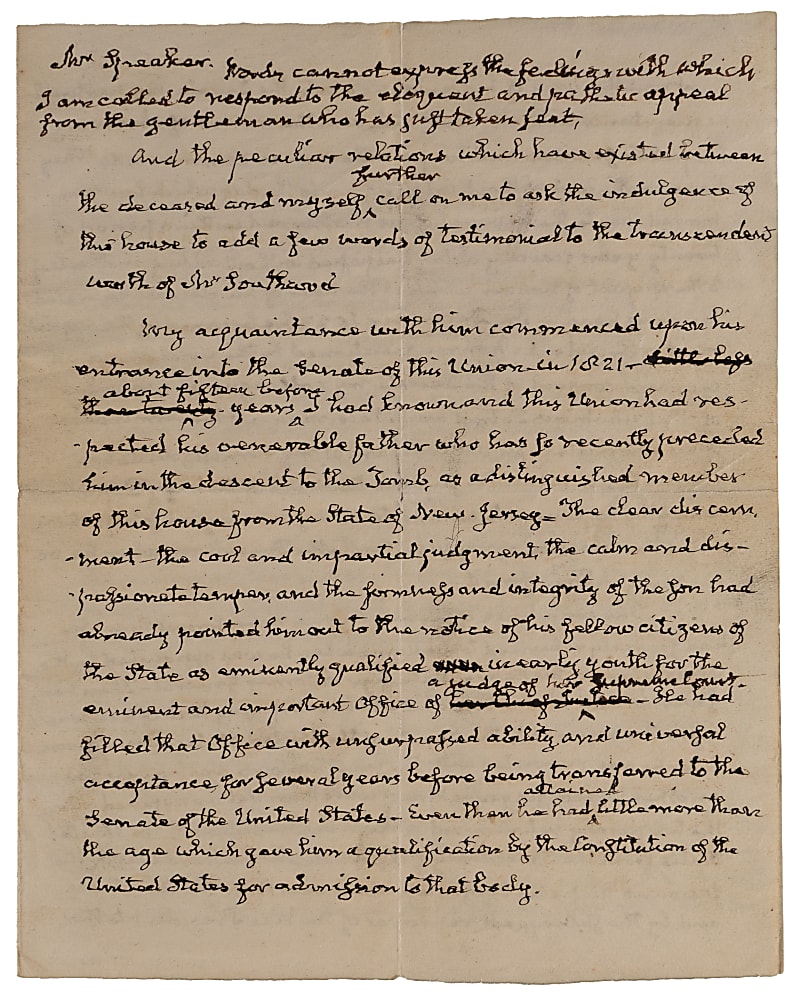 Mr Speaker. Words cannot express the feelings with which
I am called to respond to the eloquent and pathetic appeal
from the gentleman who has just taken seat,
And the peculiar relations which have existed between
further
the deceased and myself ‸ call on me to ask the indulgence of
this house to add a few words of testimonial to the transcendent
worth of Mr Southard
My acquaintance with him commenced upon his
entrance into the Senate of this Union in 1821 - little less
about fifteen before
than twenty - years ‸ I had known and this Union had res-
-pected his venerable father who has so recently preceded
him in the descent to the Tomb, as a distinguished member
of this house from the State of New-Jersey = The clear discern,
-ment - the cool and impartial judgment, the calm and dis-
-passionate temper, and the firmness and integrity of the son had
already pointed him out to the notice of his fellow citizens of
the State as eminently qualified even in early youth for the
a judge of her Supreme Court.
eminent and important Office of her Chief Justice - He had
filled that Office with unsurpassed ability and universal
acceptance, for several years before being transferred to the
attained
Senate of the United States - Even then he had ‸ little more than
the age which gave him a qualification by the Constitution of the
United States for admission to that body.